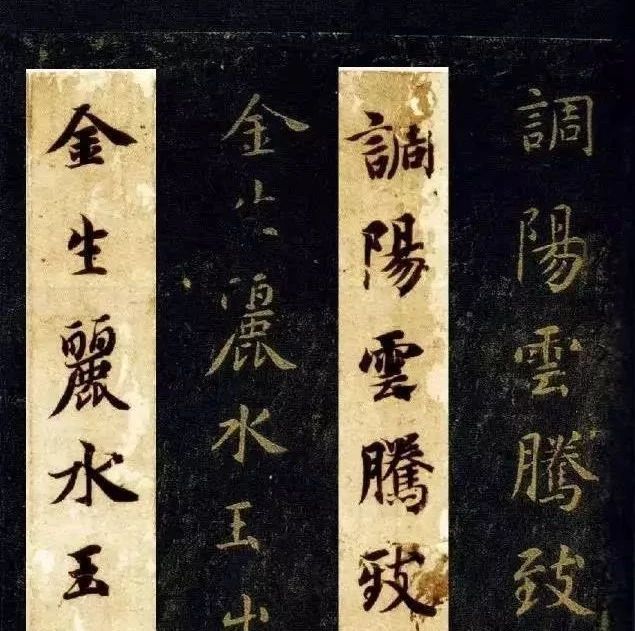 調陽雲騰致
調陽雲騰致
金生麗水玉出
金生麗水玉